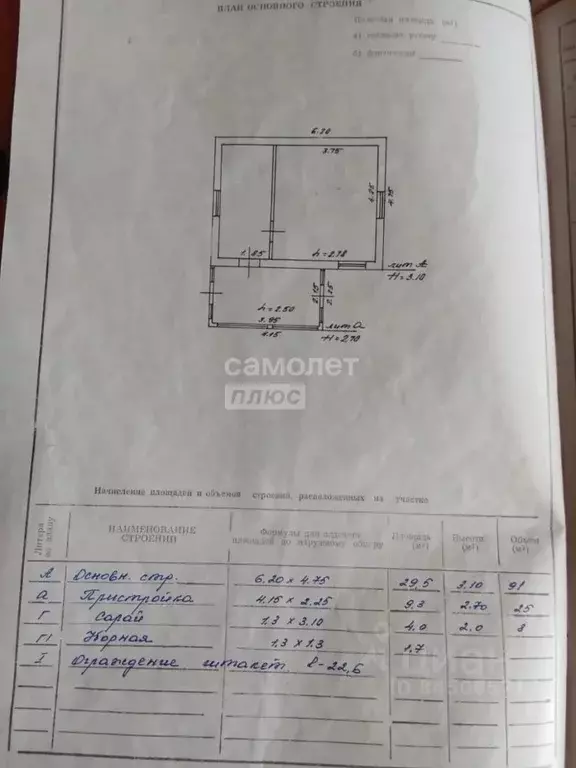 ПЛАН ОСНОВНОГО СТРОЕНИЯ
6.20
3.75
4.25
4.75
1.85
h=2.78
лит А
H=3.10
h=2.50
2.15
2.25
3.95
4.15
лит а
H=2.70
самолет
плюс
Исчисление площадей и объемов строений, расположенных на участке
Литера по плану
НАИМЕНОВАНИЕ СТРОЕНИЙ
Формулы для подсчета площадей по наружному обмеру
Площадь (м²)
Высота (м)
Объем (м³)
А Основн. стр. 6.20 х 4.75 29,5 3.10 91
а Пристройка 4.15 х 2.25 9,3 2.70 25
Г Сарай 1.3 х 3.10 4.0 2.0 8
Г1 Уборная 1.3 х 1.3 1.7
I Ограждение штакет. l-22,6